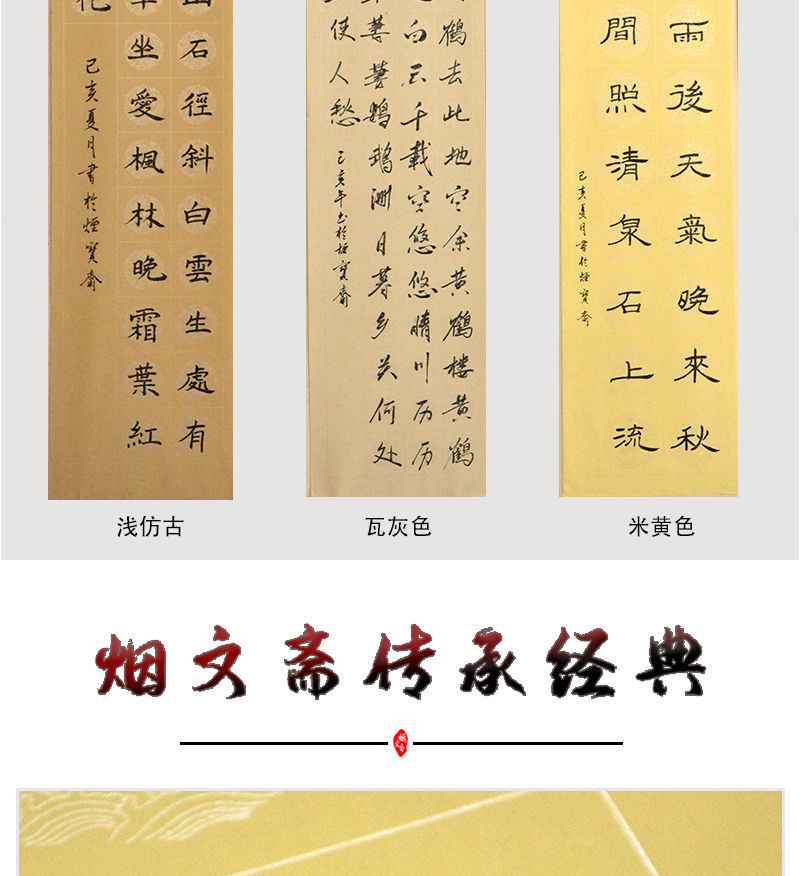 山石徑斜白雲生處有
車坐愛楓林晚霜葉紅
花
己亥夏月書於煙寶齋
鶴去此地空余黄鶴楼黄鶴
白云千载空悠悠晴川历历
萋萋鹦鹉洲日暮乡关何处
使人愁
己亥年书於煙寶齋
雨後天氣晚來秋
間照清泉石上流
己亥夏月書於煙寶齋
浅仿古
瓦灰色
米黄色
烟文斋传承经典